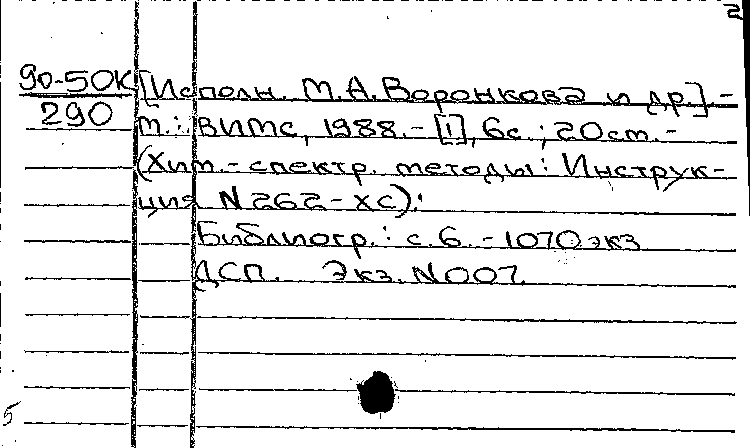 2
90-50К [Исполн. М.А.Воронкова и др.]-
290 М.: ВИМС, 1988.-[1], 6с.; 20см.-
(Хим.-спектр. методы: Инструк-
ция N262-ХС).
Библиогр.: с.6.-1070 экз
ДСП. Экз.N007.
5